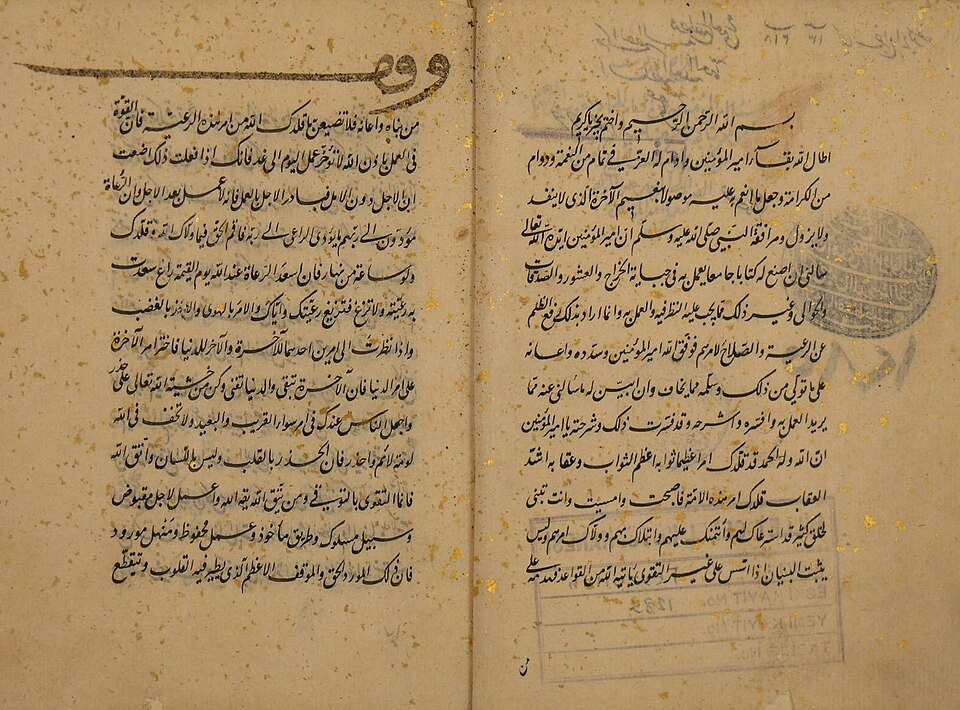 بسم الله الرحمن الرحيم واختم بخير يا كريم
اطال الله بقاء امير المؤمنين وادام له العز في تمام من النعمة ودوام
من الكرامة وجعل ما انعم به عليه موصولا بنعيم الآخرة الذى لا ينفد
ولا يزول ومرافقة النبي صلى الله عليه وسلم ان امير المؤمنين ايده الله تعالى
سالني ان اضع له كتابا جامعا يعمل به في جباية الخراج والعشور والصدقات
والجوالى وغير ذلك مما يجب عليه النظر فيه والعمل به وانما اراد بذلك رفع الظلم
عن الرعية والصلاح لامرهم فوفق الله امير المؤمنين وسدده واعانه
على ما تولى من ذلك وسلمه مما يخاف وان ابين له ما سالني عنه مما
يريد العمل به وافسره واشرحه وقد فسرت ذلك وشرحته يا امير المؤمنين
ان الله وله الحمد قد قلدك امرا عظيما ثوابه اعظم الثواب وعقابه اشد
العقاب قلدك امر هذه الامة فاصبحت وامسيت وانت تبنى
لخلق كثير قد استرعاكهم الله وأتمنك عليهم وابتلاك بهم وولاك امرهم وليس
يثبت البنيان اذا اسس على غير التقوى ياتيه الله من القواعد فيهدمه على
من
وقف
من بناه واعانه فلا تضيعن ما قلدك الله من امر هذه الرعية فان القوة
في العمل باذن الله لا تؤخر عمل اليوم الى غد فانك اذا فعلت ذلك اضعت
ان الاجل دون الامل فبادر الاجل بالعمل فانه لا عمل بعد الاجل ان الرعاة
مؤدون الى ربهم ما يؤدى الراعى الى ربه فاقم الحق فيما ولاك الله وقلدك
ولو ساعة من نهار فان اسعد الرعاة عند الله يوم القيمة راع سعدت
به رعيته ولا تزغ فتزيغ رعيتك واياك والامر بالهوى والاخذ بالغضب
واذا نظرت الى امرين احدهما للآخرة والآخر للدنيا فاختر امر الآخرة
على امر الدنيا فان الآخرة تبقى والدنيا تفنى وكن من خشية الله تعالى على حذر
واجعل الناس عندك في امر سواء القريب والبعيد ولا تخف في الله
لومة لائم واحذر فان الحذر بالقلب وليس باللسان واتق الله
فانما التقوى بالتوقى ومن يتق الله يقه الله واعمل لاجل مقبوض
وسبيل مسلوك وطريق مأخوذ وعمل محفوظ ومنهل مورود
فان ذلك المورد الحق والموقف الاعظم الذى يطير فيه القلوب وتنقطع